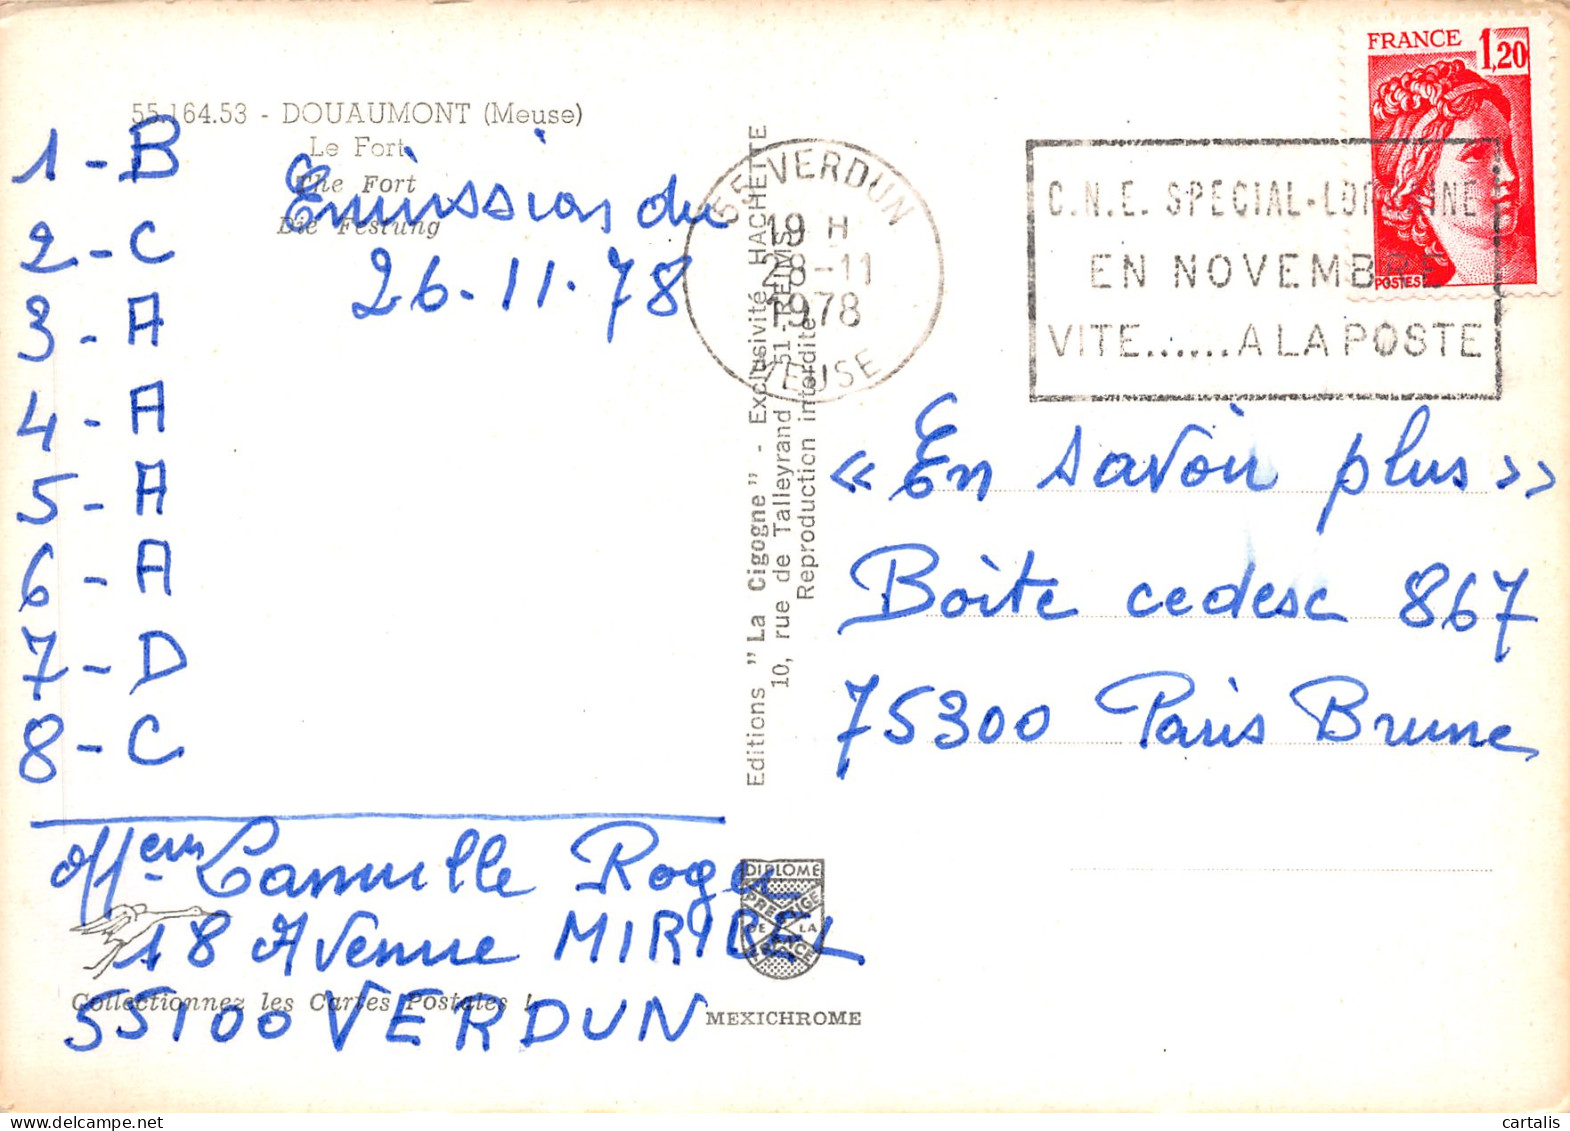 55.164.53 - DOUAUMONT (Meuse)
Le Fort
The Fort
Die Festung
Emission du
26.11.78
1 - B
2 - C
3 - A
4 - A
5 - A
6 - A
7 - D
8 - C
Roger
18 Avenue MIRIBEL
55100 VERDUN
Collectionnez les Cartes Postales !
MEXICHROME
Editions "La Cigogne" - Exclusivité HACHETTE
10, rue de Talleyrand 51-REIMS
Reproduction interdite
DIPLOME
PRESTIGE
DE LA
FRANCE
55 VERDUN
19 H
28-11
1978
MEUSE
C.N.E. SPECIAL-LORRAINE
EN NOVEMBRE
VITE......A LA POSTE
FRANCE 1,20
POSTES
« En savoir plus »
Boite cedesc 867
75300 Paris Brune
cartalis